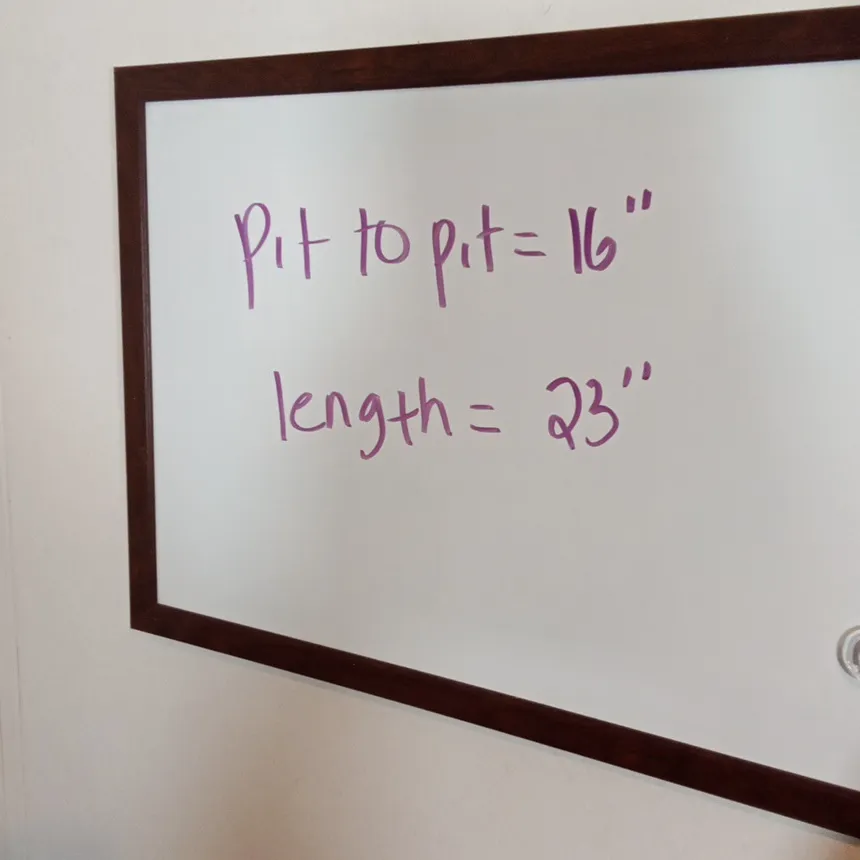 pit to pit = 16"
length = 23"